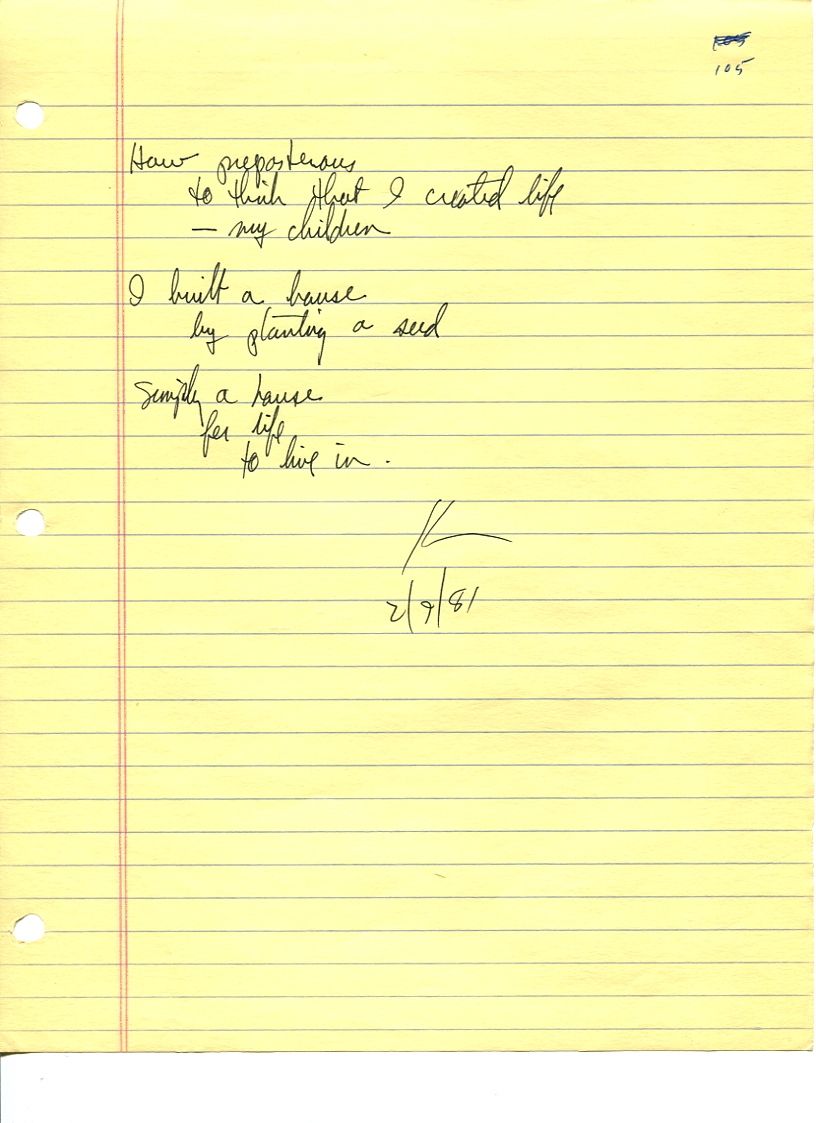 105
105
How preposterous
to think that I created life
— my children
I built a house
by planting a seed
Simply a house
for life
to live in.
K
2/9/81